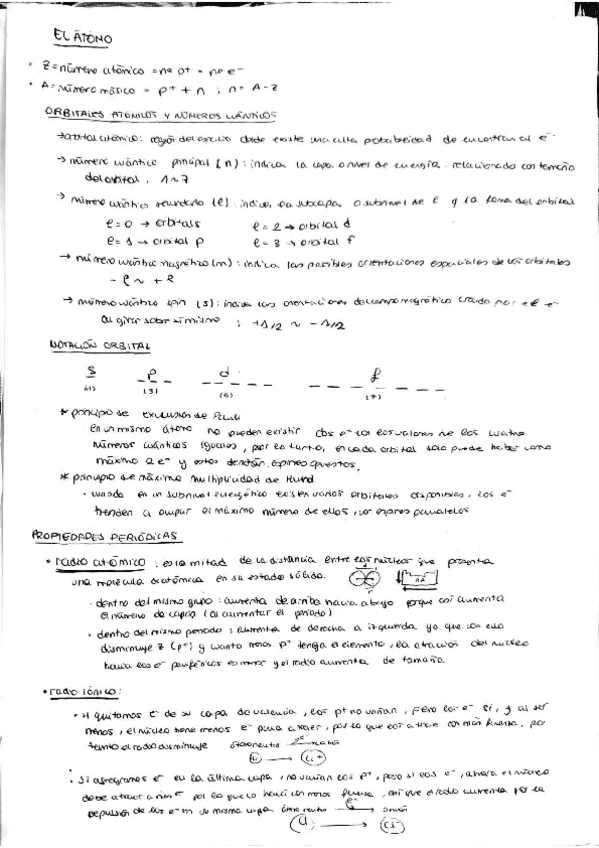 EL ÁTOMO
· Z = número atómico = nº p⁺ = nº e⁻
· A = número másico = p⁺ + n ; n = A - Z
ORBITALES ATÓMICOS Y NÚMEROS CUÁNTICOS
→ orbital atómico: región del espacio donde existe una alta probabilidad de encontrar al e⁻
→ número cuántico principal (n): indica la capa o nivel de energía. relacionado con tamaño
del orbital. 1 ~ 7
→ número cuántico secundario (l): indica la subcapa o subnivel de E y la forma del orbital
l = 0 → orbital s      l = 2 → orbital d
l = 1 → orbital p      l = 3 → orbital f
→ número cuántico magnético (m): indica las posibles orientaciones espaciales de los orbitales
- l ~ + l
→ número cuántico spin (s): indica las orientaciones del campo magnético creado por el e⁻
al girar sobre sí mismo ; +1/2 ~ -1/2
NOTACIÓN ORBITAL
s p d f
(1) (3) (5) (7)
* principio de exclusión de Pauli
en un mismo átomo no pueden existir dos e⁻ con los valores de los cuatro
números cuánticos iguales, por lo tanto, en cada orbital solo puede haber como
máximo 2 e⁻ y estos tendrán espines opuestos.
* principio de máxima multiplicidad de Hund
· cuando en un subnivel energético existen varios orbitales disponibles, los e⁻
tienden a ocupar el máximo número de ellos, con espines paralelos
PROPIEDADES PERIÓDICAS
· radio atómico: es la mitad de la distancia entre los núcleos que presenta
una molécula diatómica en su estado sólido.
· dentro del mismo grupo: aumenta de arriba hacia abajo porque así aumenta
el número de capas (al aumentar el periodo)
· dentro del mismo periodo: aumenta de derecha a izquierda ya que con ello
disminuye Z (p⁺) y cuanto menos p⁺ tenga el elemento, la atracción del núcleo
hacia los e⁻ periféricos es menor y el radio aumenta de tamaño.
· radio iónico:
· si quitamos e⁻ de su capa de valencia, los p⁺ no varían, pero los e⁻ sí, y al ser
menos, el núcleo tiene menos e⁻ para atraer, por lo que los atrae con más fuerza. por
tanto el radio disminuye átomo neutro → catión
Li → Li⁺
· Si agregamos e⁻ en la última capa, no varían los p⁺, pero sí los e⁻, ahora el núcleo
debe atraer a más e⁻ por lo que lo hará con menos fuerza, así que el radio aumenta por la
repulsión de los e⁻ en su misma capa átomo neutro e⁻ → anión
Cl → Cl⁻